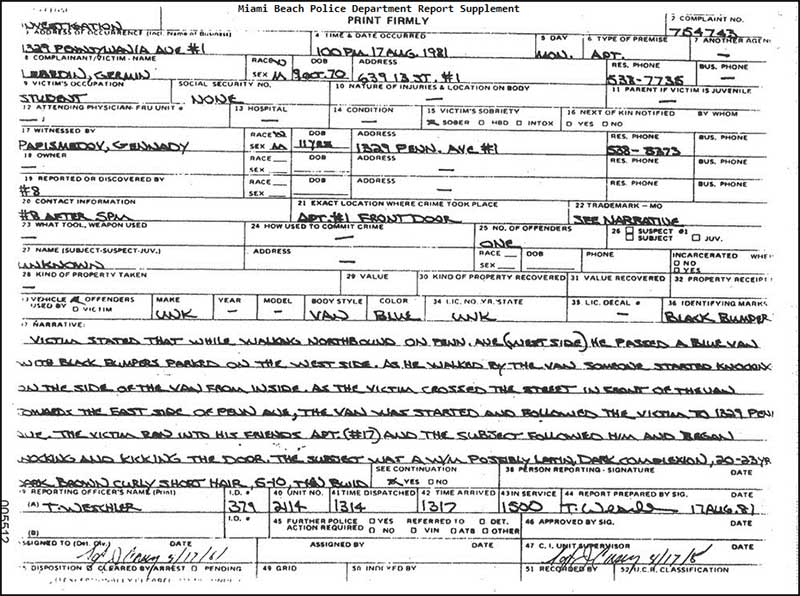 Miami Beach Police Department Report Supplement
INVESTIGATION
PRINT FIRMLY
2 COMPLAINT NO.
764743
3 ADDRESS OF OCCURRENCE (Incl. Name of Business)
4 TIME & DATE OCCURRED
5 DAY
6 TYPE OF PREMISE
7 ANOTHER AGEN
1329 PENNSYLVANIA AVE #1
100PM 17 AUG. 1981
MON.
APT.
8 COMPLAINANT/VICTIM - NAME
RACE W
DOB
ADDRESS
RES. PHONE
BUS. PHONE
SEX M
9 OCT. 70
639 13 ST. #1
533-7735
9 VICTIM'S OCCUPATION
SOCIAL SECURITY NO.
10 NATURE OF INJURIES & LOCATION ON BODY
11 PARENT IF VICTIM IS JUVENILE
STUDENT
NONE
12 ATTENDING PHYSICIAN-FRU UNIT
13 HOSPITAL
14 CONDITION
15 VICTIM'S SOBRIETY
16 NEXT OF KIN NOTIFIED
BY WHOM
SOBER HBD INTOX
YES NO
17 WITNESSED BY
RACE W
DOB
ADDRESS
RES. PHONE
BUS. PHONE
GENNADY
SEX M
11 YRS
1329 PENN. AVE #1
538-8373
18 OWNER
RACE
DOB
ADDRESS
RES. PHONE
BUS. PHONE
SEX
19 REPORTED OR DISCOVERED BY
RACE
DOB
ADDRESS
RES. PHONE
BUS. PHONE
#8
SEX
20 CONTACT INFORMATION
21 EXACT LOCATION WHERE CRIME TOOK PLACE
22 TRADEMARK - MO
#8 AFTER 5PM
APT. #1 FRONT DOOR
SEE NARRATIVE
23 WHAT TOOL, WEAPON USED
24 HOW USED TO COMMIT CRIME
25 NO. OF OFFENDERS
26 SUSPECT #1
ONE
SUBJECT JUV.
27 NAME (SUBJECT-SUSPECT-JUV.)
ADDRESS
RACE
DOB
PHONE
INCARCERATED WHE
NO
UNKNOWN
SEX
YES
28 KIND OF PROPERTY TAKEN
29 VALUE
30 KIND OF PROPERTY RECOVERED
31 VALUE RECOVERED
32 PROPERTY RECEIP
VEHICLE OFFENDERS
MAKE
YEAR
MODEL
BODY STYLE
COLOR
34 LIC. NO. YR. STATE
35 LIC. DECAL #
36 IDENTIFYING MARKS
USED BY VICTIM
UNK
VAN
BLUE
UNK
BLACK BUMPER
NARRATIVE:
VICTIM STATED THAT WHILE WALKING NORTHBOUND ON PENN. AVE (WEST SIDE) HE PASSED A BLUE VAN
WITH BLACK BUMPERS PARKED ON THE WEST SIDE. AS HE WALKED BY THE VAN SOMEONE STARTED KNOCKING
ON THE SIDE OF THE VAN FROM INSIDE. AS THE VICTIM CROSSED THE STREET IN FRONT OF THE VAN
TOWARDS THE EAST SIDE OF PENN AVE, THE VAN WAS STARTED AND FOLLOWED THE VICTIM TO 1329 PENN
AVE. THE VICTIM RAN INTO HIS FRIENDS APT. (#17) AND THE SUBJECT FOLLOWED HIM AND BEGAN
KNOCKING AND KICKING THE DOOR. THE SUBJECT WAS A W/M POSSIBLY LATIN, DARK COMPLEXION, 20-23 YR
DARK BROWN CURLY SHORT HAIR, 5-10, THIN BUILD
SEE CONTINUATION
YES NO
38 PERSON REPORTING - SIGNATURE
DATE
39 REPORTING OFFICER'S NAME (Print)
I.D. #
40 UNIT NO.
41 TIME DISPATCHED
42 TIME ARRIVED
43 IN SERVICE
44 REPORT PREPARED BY SIG.
DATE
(A) T. WESCHLER
379
2114
1314
1317
1500
17 AUG. 81
I.D. #
45 FURTHER POLICE YES REFERRED TO DET.
ACTION REQUIRED NO VIN ATB OTHER
46 APPROVED BY SIG.
DATE
(B)
ASSIGNED TO (Det. Div.)
DATE
ASSIGNED BY
DATE
47 C. I. UNIT SUPERVISOR
DATE
DISPOSITION CLEARED BY ARREST PENDING
49 GRID
50 INDEXED BY
51 RECORDED BY
52 U.C.R. CLASSIFICATION
005512